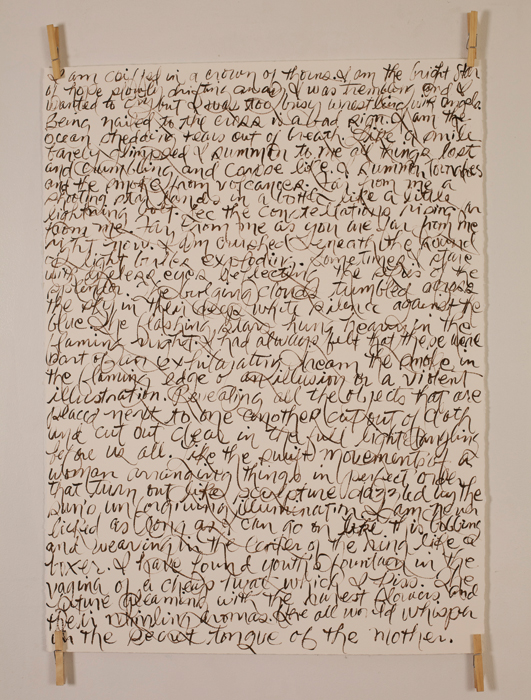 I am coiffed in a crown of thorns. I am the bright star
of hope slowly drifting away. I was trembling and I
wanted to cry but I was too busy wrestling with angels.
Being nailed to the cross is a bad sign. I am the
ocean shedding tears out of breath. Like a smile
barely glimpsed I summon to me all things lost
and crumbling and caress like a summer
and the smoke from volcanoes. Far from me a
shooting star lands in a bottle like a little
lightning bolt. See the constellations rising in
from me far from me as you are far from me
right now. I am crushed beneath the sound
of light bodies exploding. Sometimes I stare
with eyes reflecting the of the
splendor. The bulging clouds tumbled across
the sky in their deep white silence against the
blue. The flashing stars hung heavy in the
flaming night. I had always felt that these were
part of our exhilaration dream the smoke in
the flaming edge of an illusion or a violent
illustration. Revealing all the objects that are
placed next to one another cut out of cloth
and cut out clear in the full light dangling
before us all. Like the quiet movements of a
woman arranging things in perfect order
that turn out like sculpture dazzled by the
sun's unforgiving illumination. I am never
licked as long as I can go on like this bobbing
and weaving in the center of the ring like a
boxer. I have found youth's fountain in the
vagina of a cheap twat which I kiss. The
future gleaming with the purest flowers and
their mingling aromas. Like all would whisper
in the secret tongue of the mother.